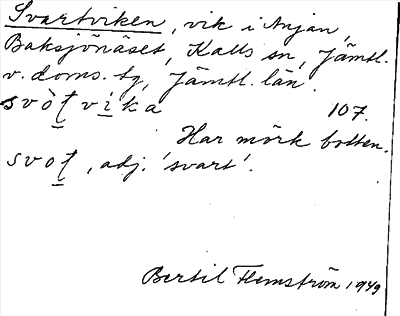 Svartviken, vik i Anjan,
Baksjönäset, Kalls sn, Jämtl.
v. doms. tg, Jämtl. län.
svòt̲ vi̲ka 107.
Har mörk botten.
svot̲, adj. 'svart'.
Bertil Flemström 1949